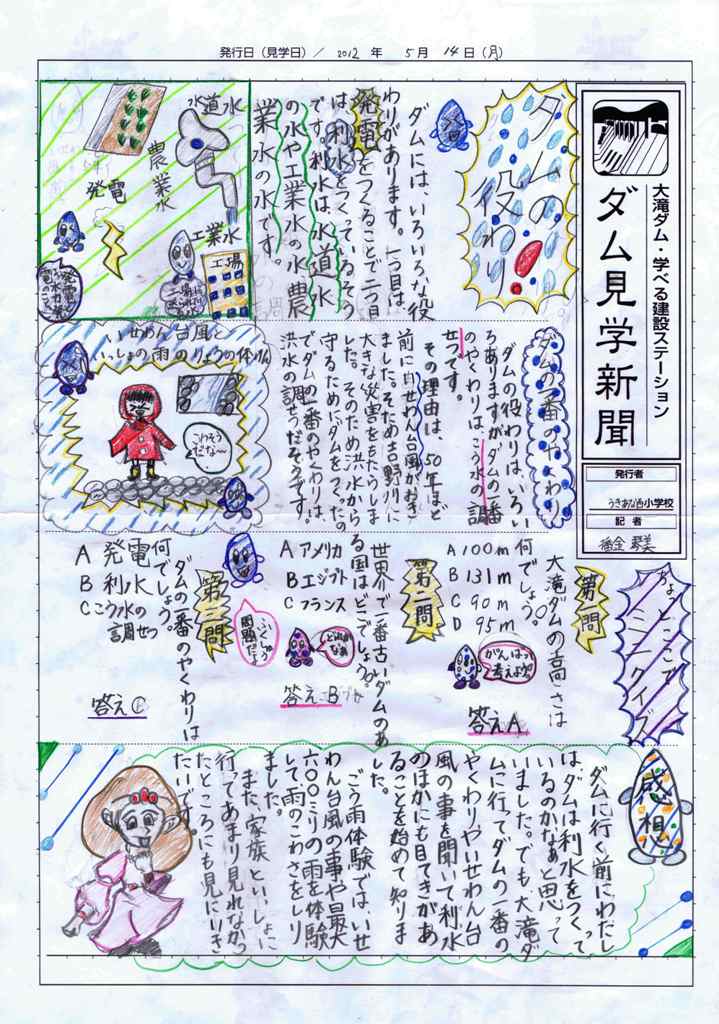 発行日（見学日）／ 2012 年 5月 14日（月）
大滝ダム・学べる建設ステーション
ダム見学新聞
発行者
小学校
記者
ダムの役わり
ダムには、いろいろな役
わりがあります。一つ目は、
発電をつくることで二つ目
は利水をつくっているそう
です。利水は、水道水
の水や工業水の水、農
業水の水です。
水道水
農業水
発電
工業水
工場
ダムの一番のやくわり
ダムの役わりは、いろい
ろありますがダムの一番
のやくわりは、こう水の調
せつです。
その理由は、50年ほど
前にいせわん台風がおき
ました。そのため吉野川に
大きな災害をもたらしま
した。そのため洪水から
守るためにダムをつくったの
でダムの一番のやくわりは、
洪水の調せつだそうです。
いせわん台風と
いっしょの雨のりょうの体けん
こわそう
だな〜
ちょっとここで
ミニクイズ
第一問
大滝ダムの高さは
何でしょう。
A 100m
B 131m
C 90m
D 95m
がんばって
考えよう
答えA
第二問
世界で一番古いダムのあ
る国はどこでしょう。
A アメリカ
B エジプト
C フランス
どれかなぁ
答えB
第三問
ふくしゅう
問題だよ
ダムの一番のやくわりは
何でしょう。
A 発電
B 利水
C こう水の
調せつ
答えC
感想
ダムに行く前にわたし
はダムは利水をつくって
いるのかなぁと思って
いました。でも大滝ダ
ムに行ってダムの一番の
やくわりやいせわん台
風の事を聞いて利水
のほかにも目てきがあ
ることを始めて知りま
した。
ごう雨体験では、いせ
わん台風の事や最大
六〇〇ミリの雨を体験
して、雨のこわさをしり
ました。
また、家族といっしょに
行ってあまり見れなかっ
たところにも見にいき
たいです。